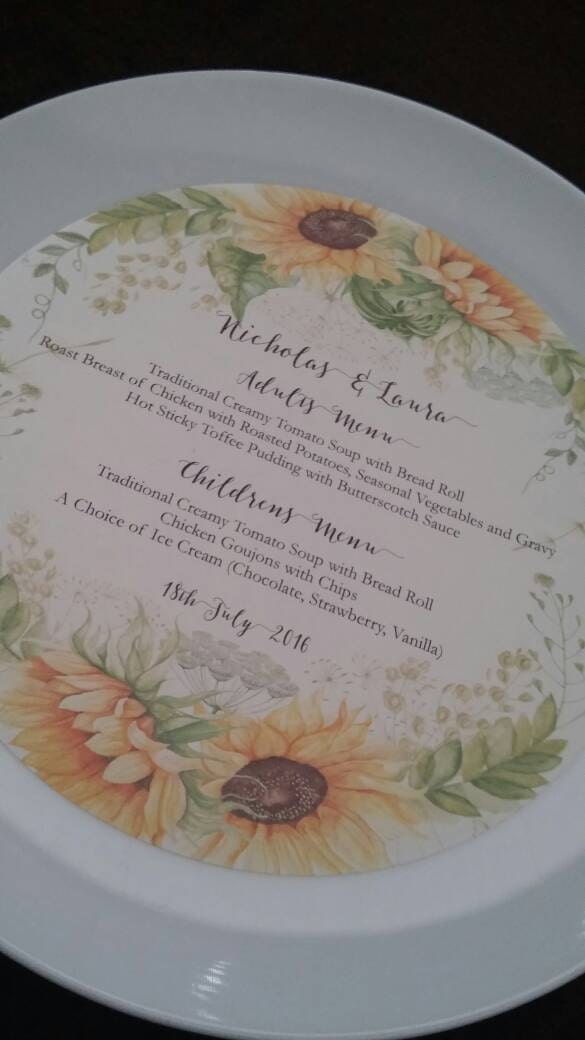 Nicholas & Laura
Adults Menu
Traditional Creamy Tomato Soup with Bread Roll
Roast Breast of Chicken with Roasted Potatoes, Seasonal Vegetables and Gravy
Hot Sticky Toffee Pudding with Butterscotch Sauce
Childrens Menu
Traditional Creamy Tomato Soup with Bread Roll
Chicken Goujons with Chips
A Choice of Ice Cream (Chocolate, Strawberry, Vanilla)
18th July 2016